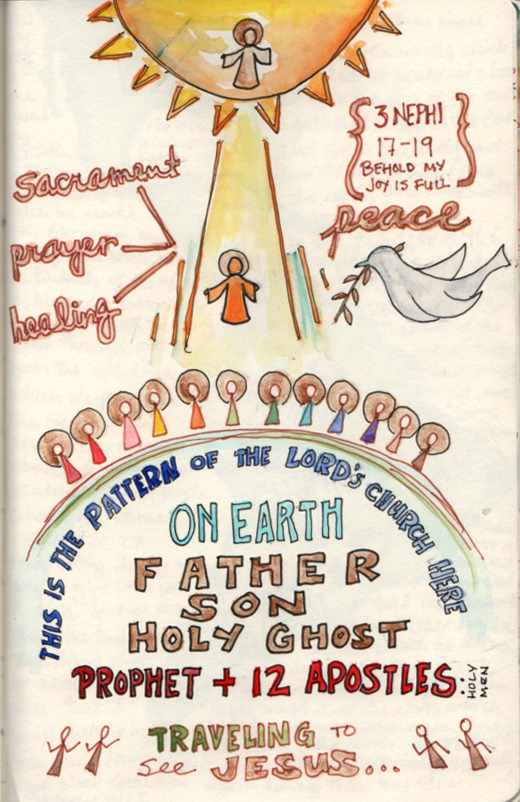 3 NEPHI
17-19
BEHOLD MY
JOY IS FULL
sacrament
prayer
healing
peace
THIS IS THE PATTERN OF THE LORD'S CHURCH HERE
ON EARTH
FATHER
SON
HOLY GHOST
PROPHET + 12 APOSTLES: HOLY MEN
TRAVELING TO
see JESUS...